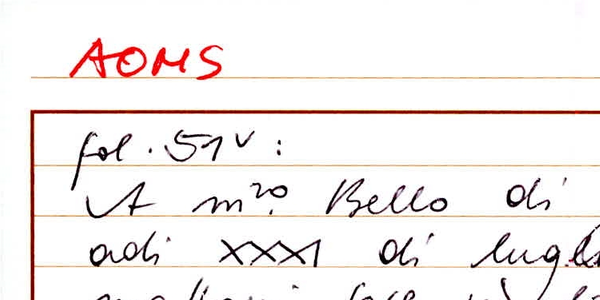 AOMS
fol. 51v:
A m.ro Bello di
adi XXXI di lugli